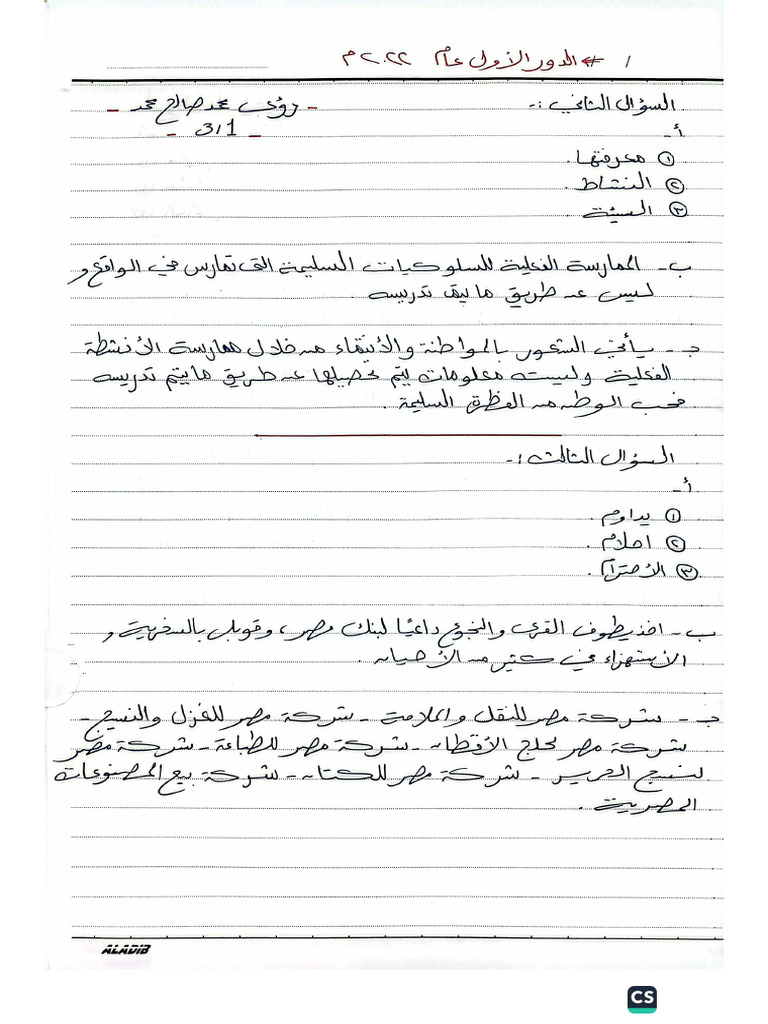 ١/ # الدور الأول عام ٢٠٢٢ م
السؤال الثاني :-
- رؤى محمد صالح محمد -
- 3/1 -
أ-
① معرفتها .
② النشاط .
③ السيئة
ب- الممارسة الفعلية للسلوكيات السليمة التى تمارس في الواقع و
ليس عن طريق ما يتم تدريسه .
جـ- يأتي الشعور بالمواطنة والأنتماء من خلال ممارسة الأنشطة
الفعلية وليست معلومات يتم تحصيلها عن طريق ما يتم تدريسه
فحب الوطن من الفطرة السليمة .
السؤال الثالث :-
أ-
① يداوم .
② احلام .
③ الأحترام .
ب- اخذ يطوف القرى والنجوع داعيًا لبنك مصر ، وقوبل بالسخرية و
الأستهزاء في كثير من الأحيان .
جـ- شركة مصر للنقل والملاحة - شركة مصر للغزل والنسيج -
شركة مصر لحلج الأقطان - شركة مصر للطباعة - شركة مصر
لنسيج الحرير - شركة مصر للكتان - شركة بيع المصنوعات
المصرية .
ALADIB
CS